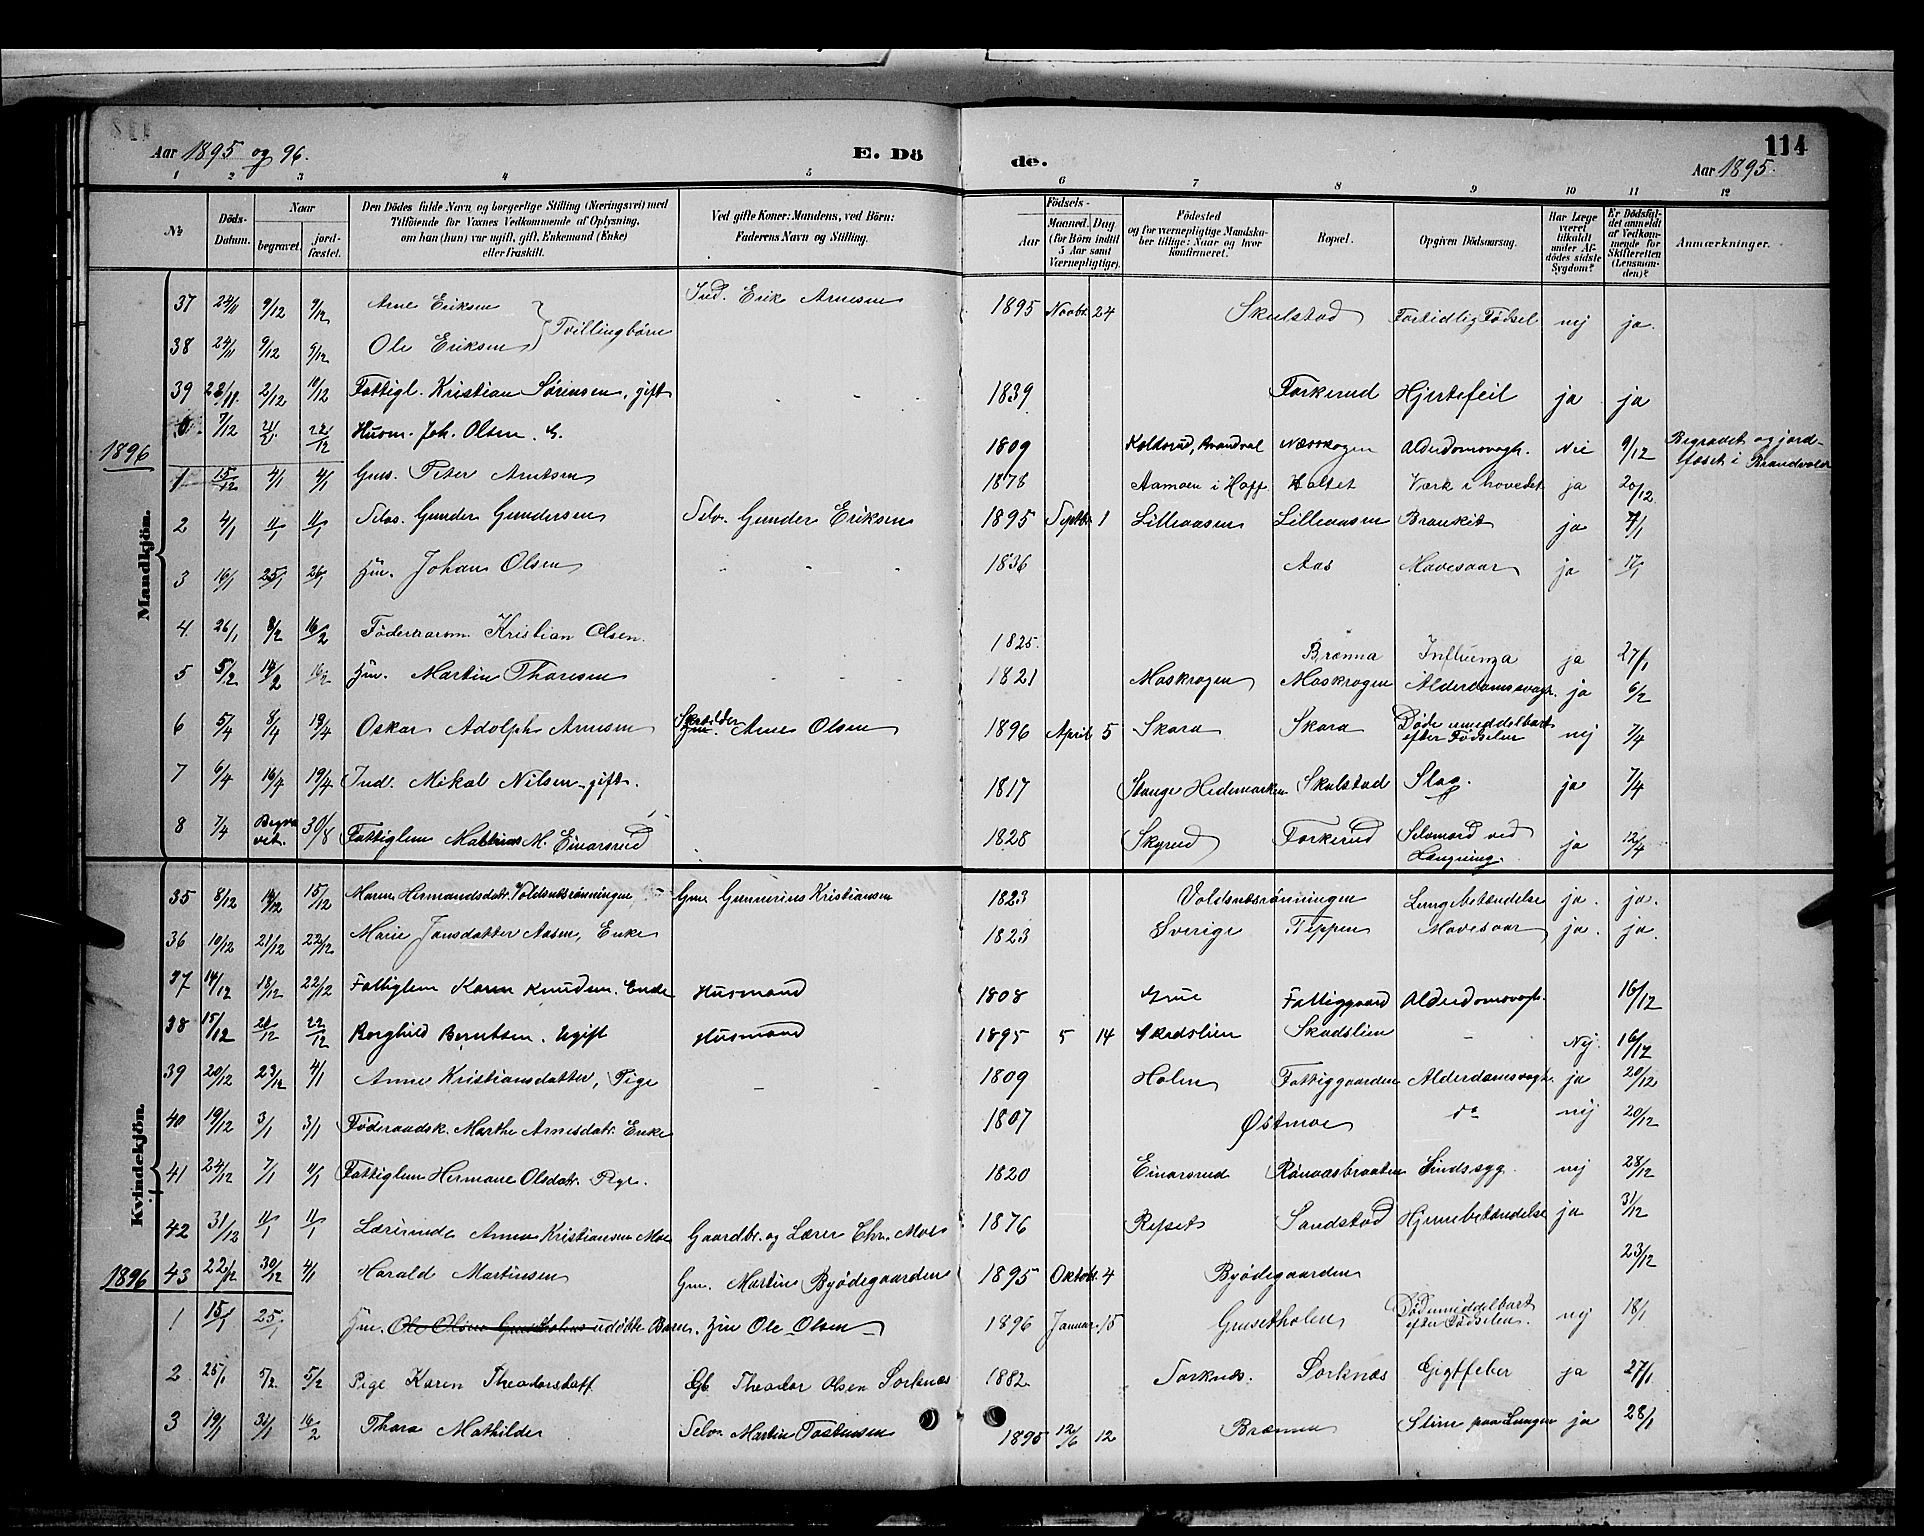 Aar 1895 og 96. E. Dö de. 114
Aar 1895.
1 2 3 4 5 6 7 8 9 10 11 12
№ Döds-Datum. Naar begravet. jord-fæstet. Den Dödes fulde Navn og borgerlige Stilling (Næringsvei) med Tilföiende for Voxnes Vedkommende af Oplysning, om han (hun) var ugift, gift, Enkemand (Enke) eller fraskilt. Ved gifte Koner: Mandens, ved Börn: Faderens Navn og Stilling. Födsels- Aar Maaned. Dag (for Börn indtil 5 Aar samt Værnepligtige). Födested og for værnepligtige Mandskaber tillige: Naar og hvor konfirmeret. Bopæl. Opgiven Dödsaarsag. Har Læge været tilkaldt under Afdödes sidste Sygdom? Er Dödsfaldet anmeldt af Vedkommende for Skifteretten (Lensmanden)? Anmærkninger.
Mandkjön.
37 24/11 9/12 9/12 Arne Eriksen Tvillingbörn Ind. Erik Arnesen 1895 Novbr. 24 Skulstad Fortidlig Födsel nej ja.
38 24/11 9/12 9/12 Ole Eriksen
39 28/11 2/12 10/12 Fattigl. Kristian Sörensen, gift 1839 Forkerud Hjertefeil ja ja
7/12 21/12 22/12 Husm. Joh. Olsen. G. 1809 Brandval Næsskogen Alderdomsvagh. Nei 9/12 Begravet og jordfæset i Brandvold
1896
1 15/12 4/1 4/1 Gms. Peter Arntsen 1876 Aamoen i Hoff Holtet Værk i hovedet ja 20/12
2 4/1 11/1 11/1 Selvs. Gunder Gundersen Selv. Gunder Eriksen 1895 Septbr 1 Lilleaasen Lilleaasen Bronkit ja 7/1
3 16/1 25/1 26/1 Hm. Johan Olsen 1836 Aas Mavesaar ja 17/1
4 26/1 8/2 16/2 Föderaasm. Kristian Olsen. 1825. Brænna Influenza ja 27/1
5 5/2 14/2 16/2 Hm. Martin Thoresen 1821 Moskrogen Moskrogen Alderdomssvagh. ja 6/2
6 5/4 8/4 19/4 Oskar Adolph Arnesen Skrædder Arne Olsen 1896 April 5 Skara Skara Döde umiddelbart efter Födselen nej 7/4
7 6/4 16/4 19/4 Ind. Mikal Nilsen - gift. 1817 Stange Hedemarken Skulstad Slag. ja 7/4
8 7/4 Begravet. 30/8 Fattiglem Mathias M. Einarsrud 1828 Skyrud Forkerud Selvmord ved Hængning. ja 12/4
Kvindekjön.
35 8/12 14/12 15/12 Maren Hermandsdatr. Voldsnesrönningen Gm. Gunnerius Kristiansen 1823 Voldsnæsrönningen Lungebetændelse ja. ja.
36 10/12 21/12 22/12 Marie Jansdatter Aasen, Enke 1823 Sverige Teppen Mavesaar ja. ja.
37 14/12 18/12 22/12 Fattiglem Karen Knudsen. Enke Husmand 1808 Grue Fattiggaard Alderdomsvagh. 16/12
38 15/12 20/12 22/12 Borghild Berntsen. Ugift Husmand 1895 5 14 Skadslien Skadslien - Nej. 16/12
39 20/12 23/12 4/1 Anne Kristiansdatter, Pige 1809 Holen Fattiggaarden Alderdomsvagh. ja 20/12
40 19/12 3/1 3/1 Föderaadsk. Marthe Arnesdatr. Enke 1807 Östmoe do nej 20/12
41 24/12 7/1 11/1 Fattiglem Hermane Olsdatr. Pige. 1820 Einarsrud Rönaasbraaten Sindssyg. nej 28/12
42 31/12 11/1 11/1 Lærerinde Anna Kristiansen Moe Gaardbr. og Lærer Chr. Moe 1876 Repset Sandstad Hjernebetændelse ja 31/12
43 22/12 30/12 4/1 Harald Martinsen Gm. Martin Byödegaarden 1895 Oktobr. 4 Byödegaarden 23/12
1896
1 15/1 25/1 Hm. Ole Olsens Grusetholens udöbte Barn. Hm Ole Olsen 1896 Januar. 15 Grusetholen Död umiddelbart efter Födselen. nej 18/1
2 25/1 5/2 5/2 Pige Karen Theodorsdatt Gb. Theodor Olsen Sorknæs 1882 Sorknæs. Sorknæs Gigtfeber ja 27/1
3 19/1 31/1 16/2 Thora Mathilde Selv. Martin Torstensen 1895 12/6 12 Brænna Slim paa Lungen ja 28/1